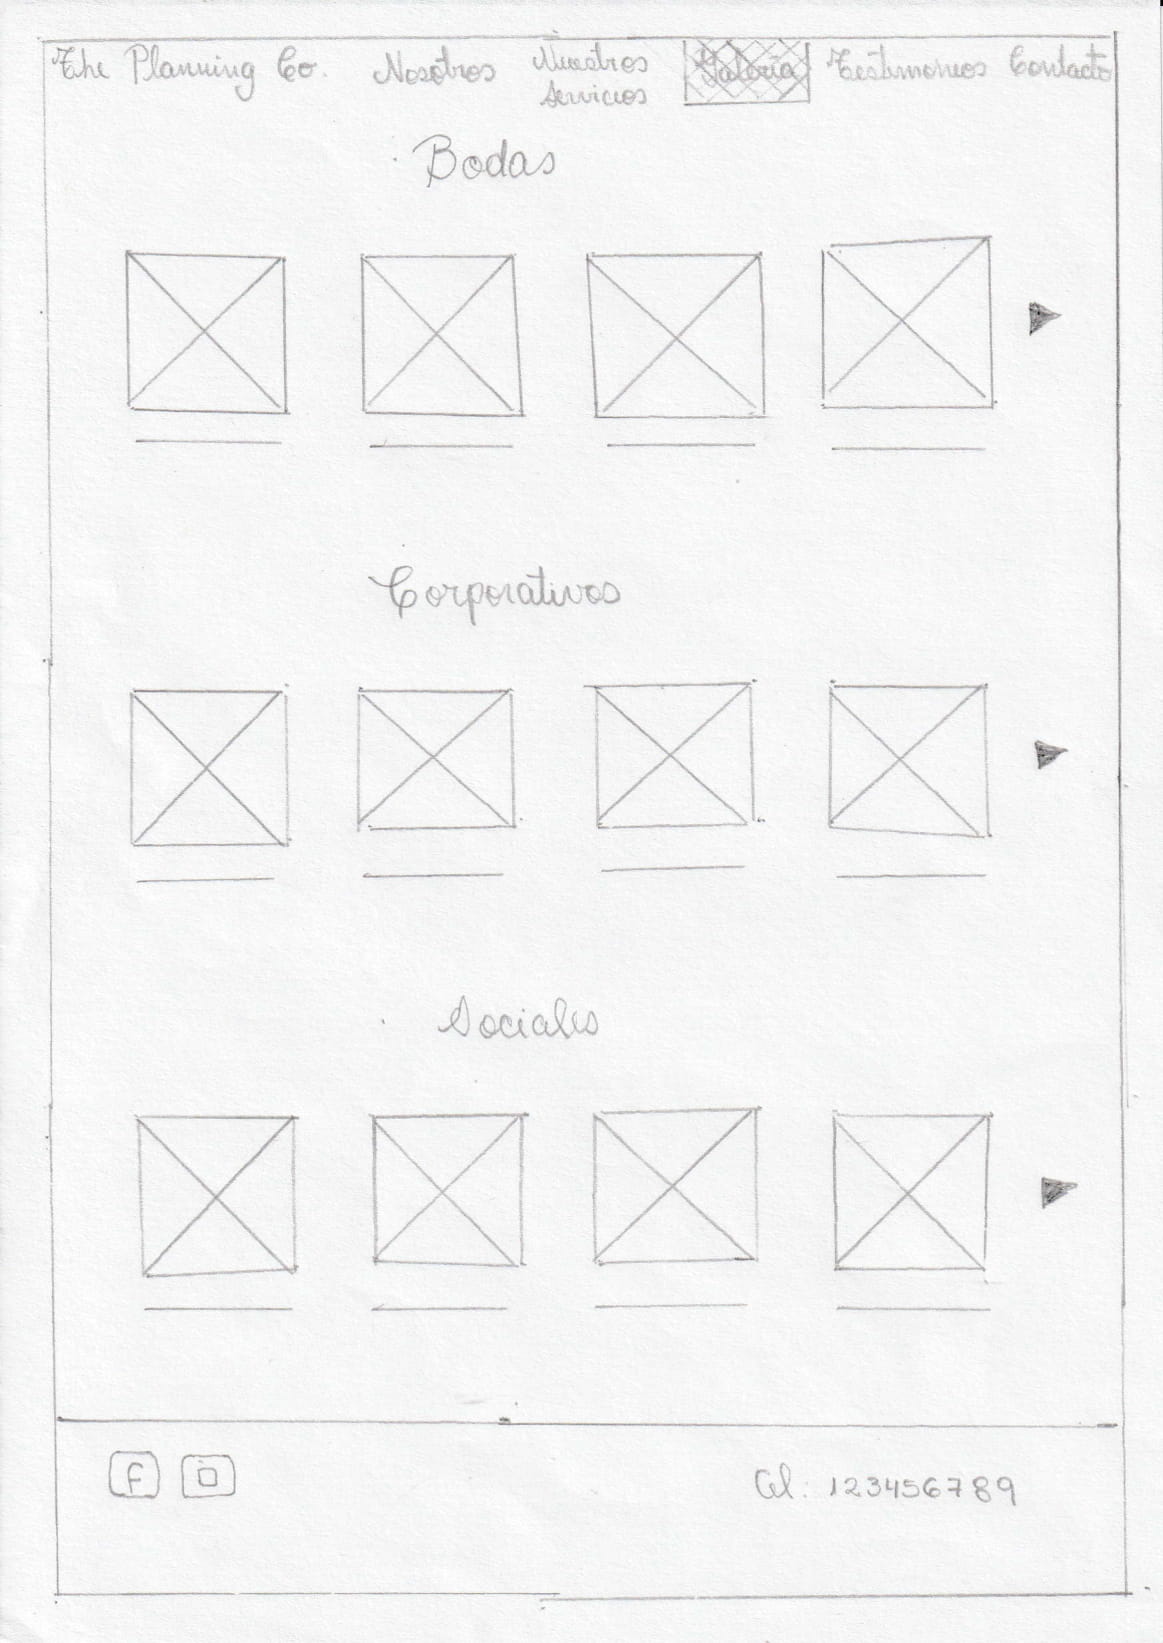 The Planning Co. Nosotros Nuestros Servicios Galería Testimonios Contacto
Bodas
Corporativos
Sociales
f
Cel: 123456789